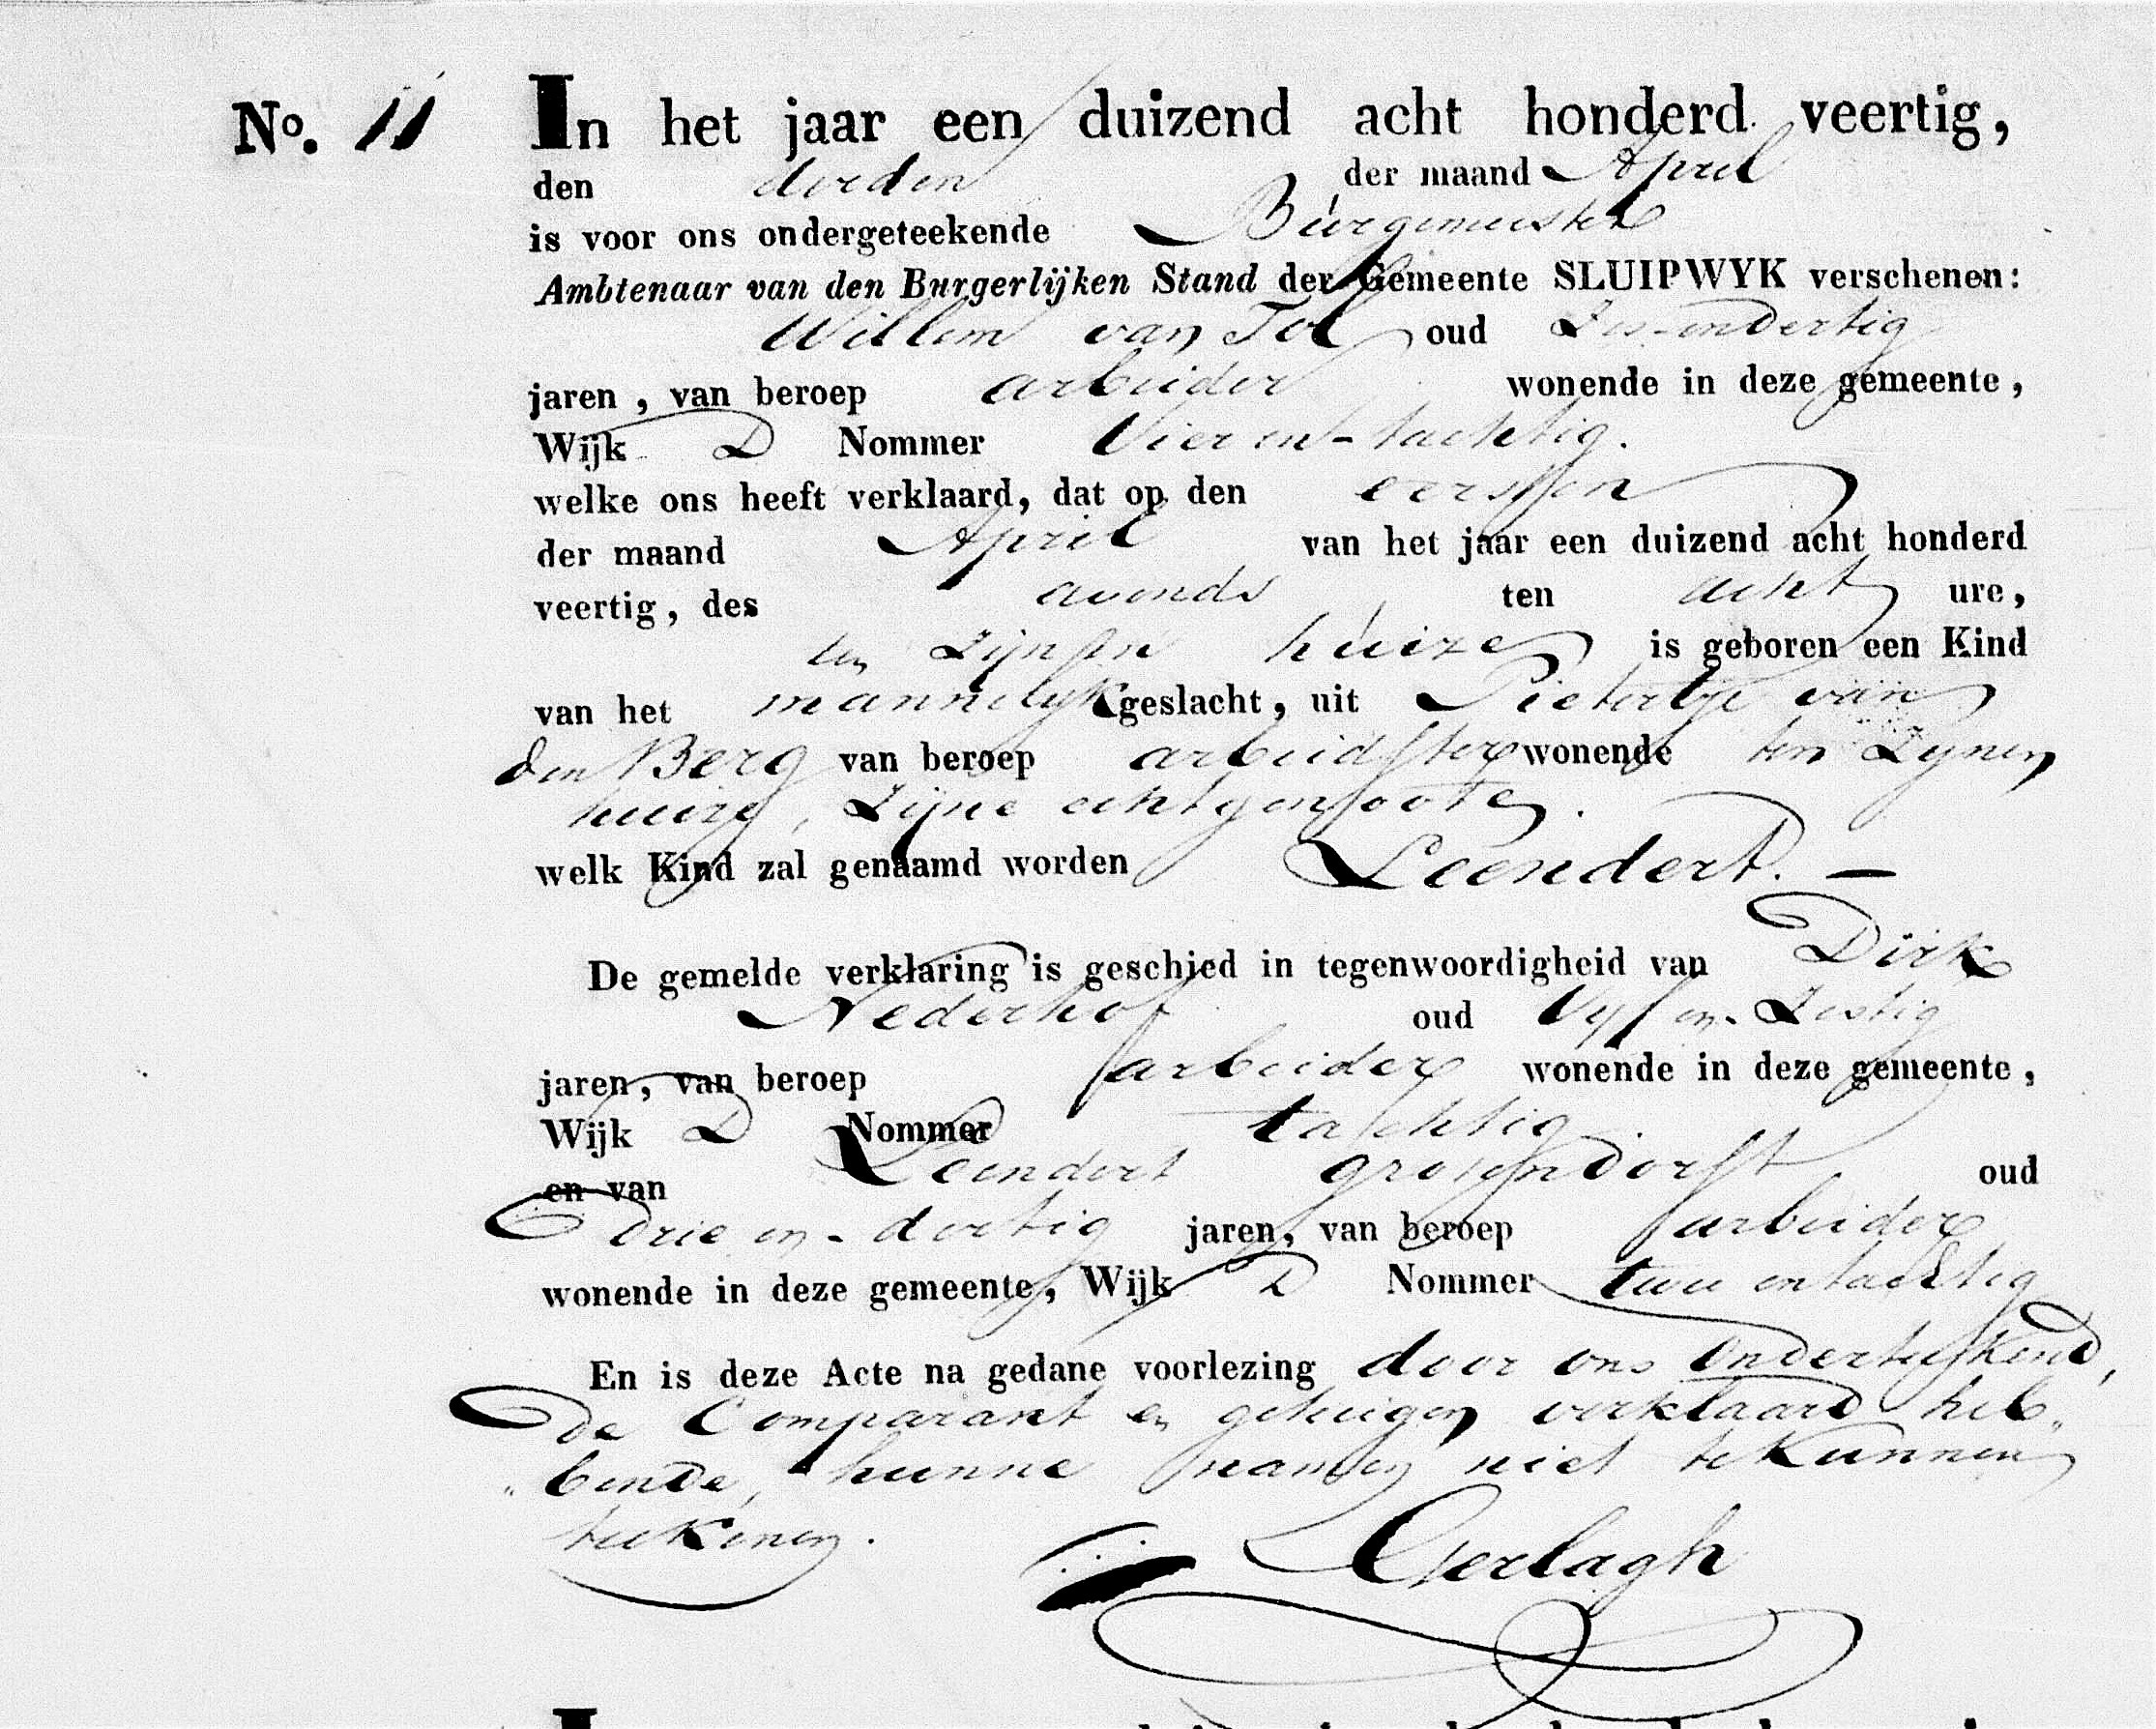 No. 11 In het jaar een duizend acht honderd veertig,
den derden der maand April
is voor ons ondergeteekende Burgemeester
Ambtenaar van den Burgerlijken Stand der Gemeente SLUIPWYK verschenen:
Willem van Tol oud Zes-en dertig
jaren, van beroep arbeider wonende in deze gemeente,
Wijk D Nommer Vier en-tachtig.
welke ons heeft verklaard, dat op den eersten
der maand April van het jaar een duizend acht honderd
veertig, des avonds ten acht ure,
ten Zijnen huize is geboren een Kind
van het mannelyk geslacht, uit Pietertje van
den Berg van beroep arbeidster wonende ten Zynen
huize, Zijne echtgenoote.
welk Kind zal genaamd worden Leendert. —
De gemelde verklaring is geschied in tegenwoordigheid van Dirk
Nederhof oud Vyf en-Zestig
jaren, van beroep arbeider wonende in deze gemeente,
Wijk D Nommer tachtig
en van Leendert oud
Drie en-dertig jaren, van beroep arbeider
wonende in deze gemeente, Wijk D Nommer twee en tachtig
En is deze Acte na gedane voorlezing door ons Onderteekend,
de Comparant en getuigen verklaard heb„
„bende, hunne namen niet te kunnen
teekenen.
Gerlagh